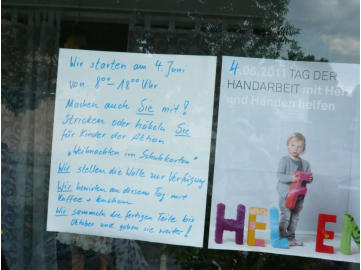 Wir starten am 4. Juni
von 8⁰⁰ - 18⁰⁰ Uhr
Machen auch Sie mit!
Stricken oder häkeln Sie
für Kinder der Aktion
"Weihnachten im Schuhkarton"
Wir stellen die Wolle zur Verfügung
Wir bewirten an diesem Tag mit
Kaffee + Kuchen
Wir sammeln die fertigen Teile bis
Oktober und geben sie weiter!
4.06.2011 TAG DER
HANDARBEIT mit Herz
und Händen helfen
HELFEN